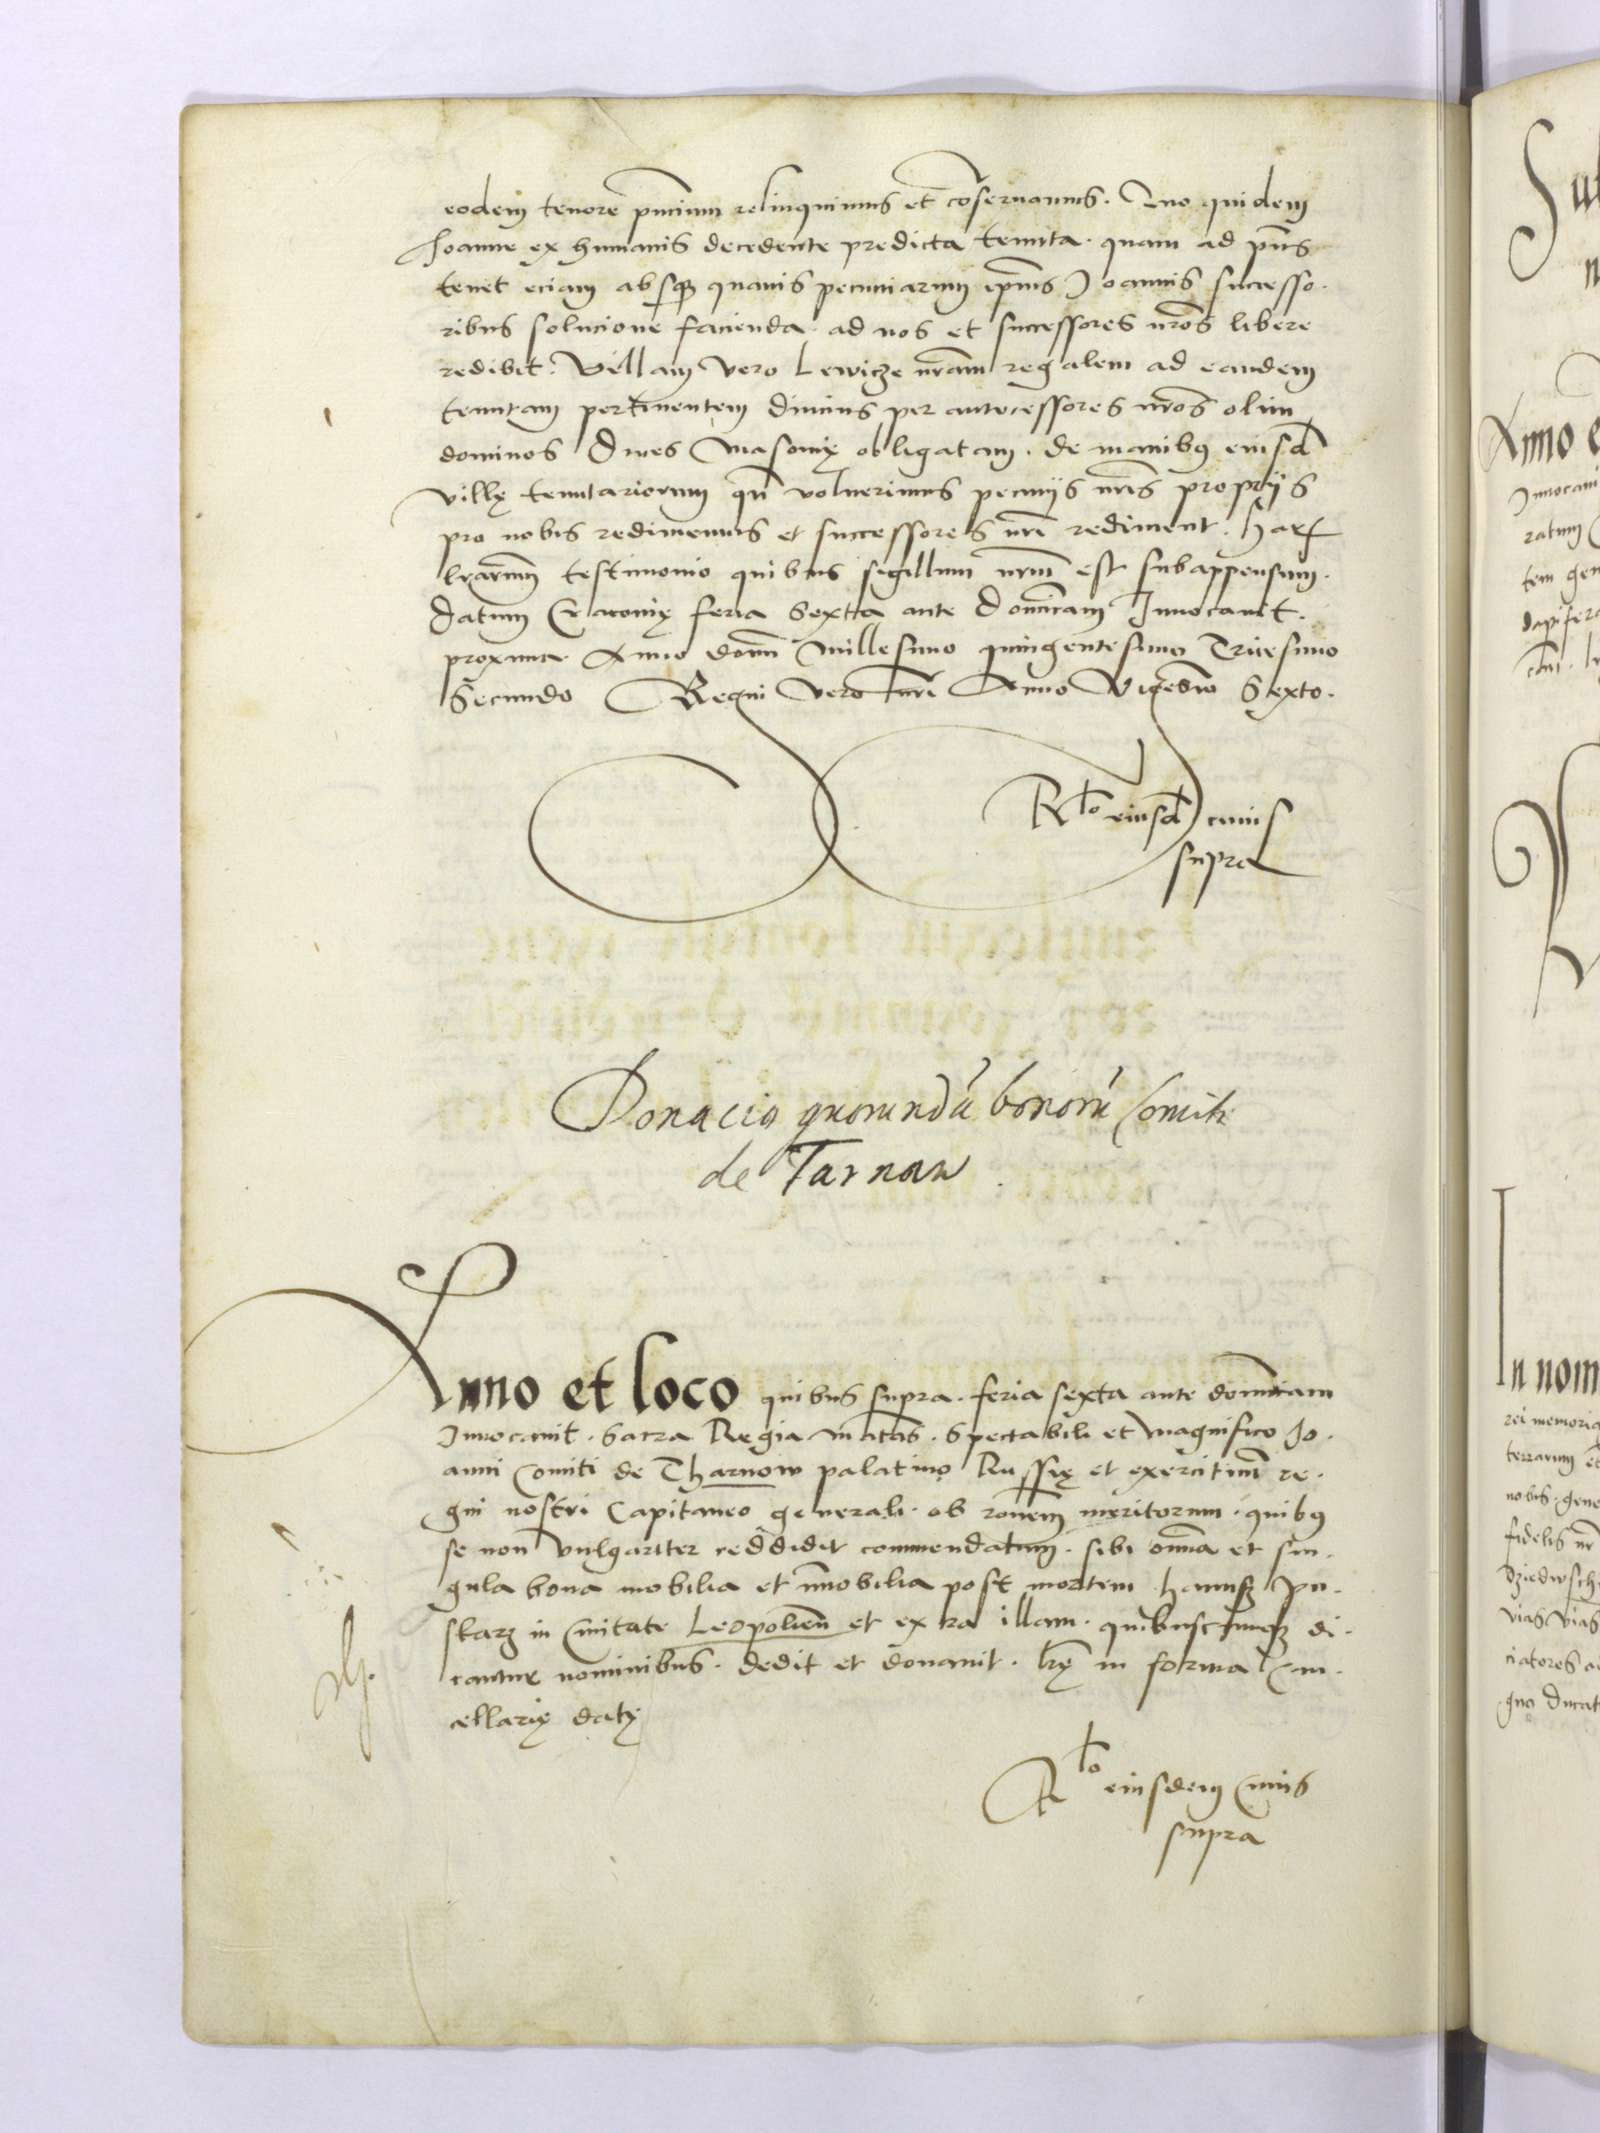 eodem tenore pñcium relinquimus et cõseruamus. Quo quidem
Joanne ex humanis decedente predicta tenuta. quam ad pñs
tenet eciam absq3 quauis pecuniarum ipius Joannis successo.
ribus solucione facienda. ad nos et successores nr̃os libere
redibit. Villam vero Lewicze nr̃am regalem ad eandem
tenutam pertinentem dimius per antecessores nr̃os olim
dominos Duces Masouię obligatam. de manibus eiusd
villę tenutariorum qñ voluerimus pecunijs nr̃is proprijs
pro nobis redimemus et successores nr̃i rediment. Har
lrarum testimonio quibus sigillum nr̃um est subappensum.
Datum Cracouię feria Sexta ante Domĩcam Inuocauit.
proxima Anno domĩ Millesimo quingentesimo Tricesimo
Secundo Regni vero nr̃i Anno Vigesĩo Sexto.
Rlo eiusd cuius
supra
Donacio quorundã bonorũ Comiti
de Tarnaw
Anno et loco quibus supra. feria sexta ante domĩcam
Inuocauit. Sacra Regia Mãtas. Spectabili et Magnifico Jo.
anni Comiti de Tharnow palatino Russię et exercituũ re.
gni nostri Capitaneo generali. ob rõnem meritorum. quibus
se non vulgariter reddidit commendatum. sibi omĩa et sin.
gula bona mobilia et ĩmobilia post mortem
in Ciuitate Leopolieñ et extra illam. quibuscumq3 di.
cantur nominibus. dedit et donauit. lr̃ę in forma Can.
cellarię datę
Rlo eiusdem Cuius
supra
Jn nom